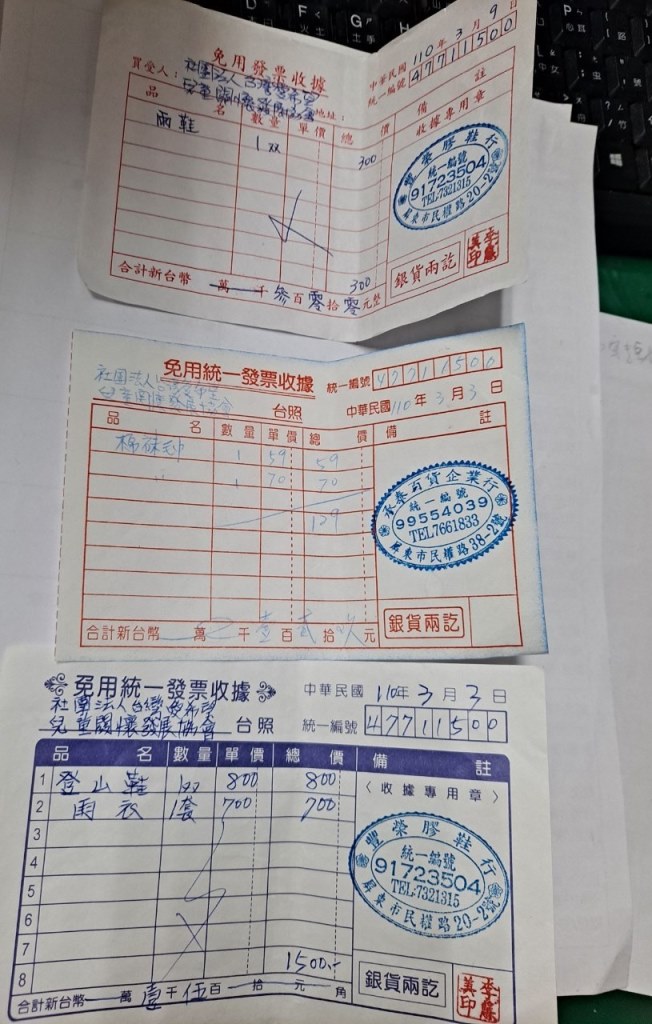 免用發票收據
中華民國 110 年 3 月 9 日
統一編號 47711500
買受人：社團法人台灣愛希望
兒童關懷發展協會
地址：
品 名 數量 單價 總 價 備 註
收據專用章
雨鞋 1双 300
豐榮膠鞋行
統一編號
91723504
TEL:7321315
屏東市民權路20-2號
300
合計新台幣 萬 千 參 百 零 拾 零 元整
銀貨兩訖
免用統一發票收據
統一編號 47711500
社團法人台灣愛希望
兒童關懷發展協會
台照
中華民國 110 年 3 月 3 日
品 名 數量 單價 總 價 備 註
1 59 59
〃 1 70 70
129
永泰百貨企業行
統一編號
99554039
TEL7661833
屏東市民權路38-2號
合計新台幣 萬 千 壹 百 貳 拾 玖 元
銀貨兩訖
免用統一發票收據
中華民國 110年 3 月 3 日
社團法人台灣愛希望
兒童關懷發展協會 台照
統一編號 47711500
品 名 數量 單價 總 價 備 註
1 登山鞋 1双 800 800
〈收據專用章〉
2 雨衣 1套 700 700
3
4
5
6
7
8 1500.-
豐榮膠鞋行
統一編號
91723504
TEL:7321315
屏東市民權路20-2號
合計新台幣 萬 壹 千 伍 百 拾 元 角
銀貨兩訖